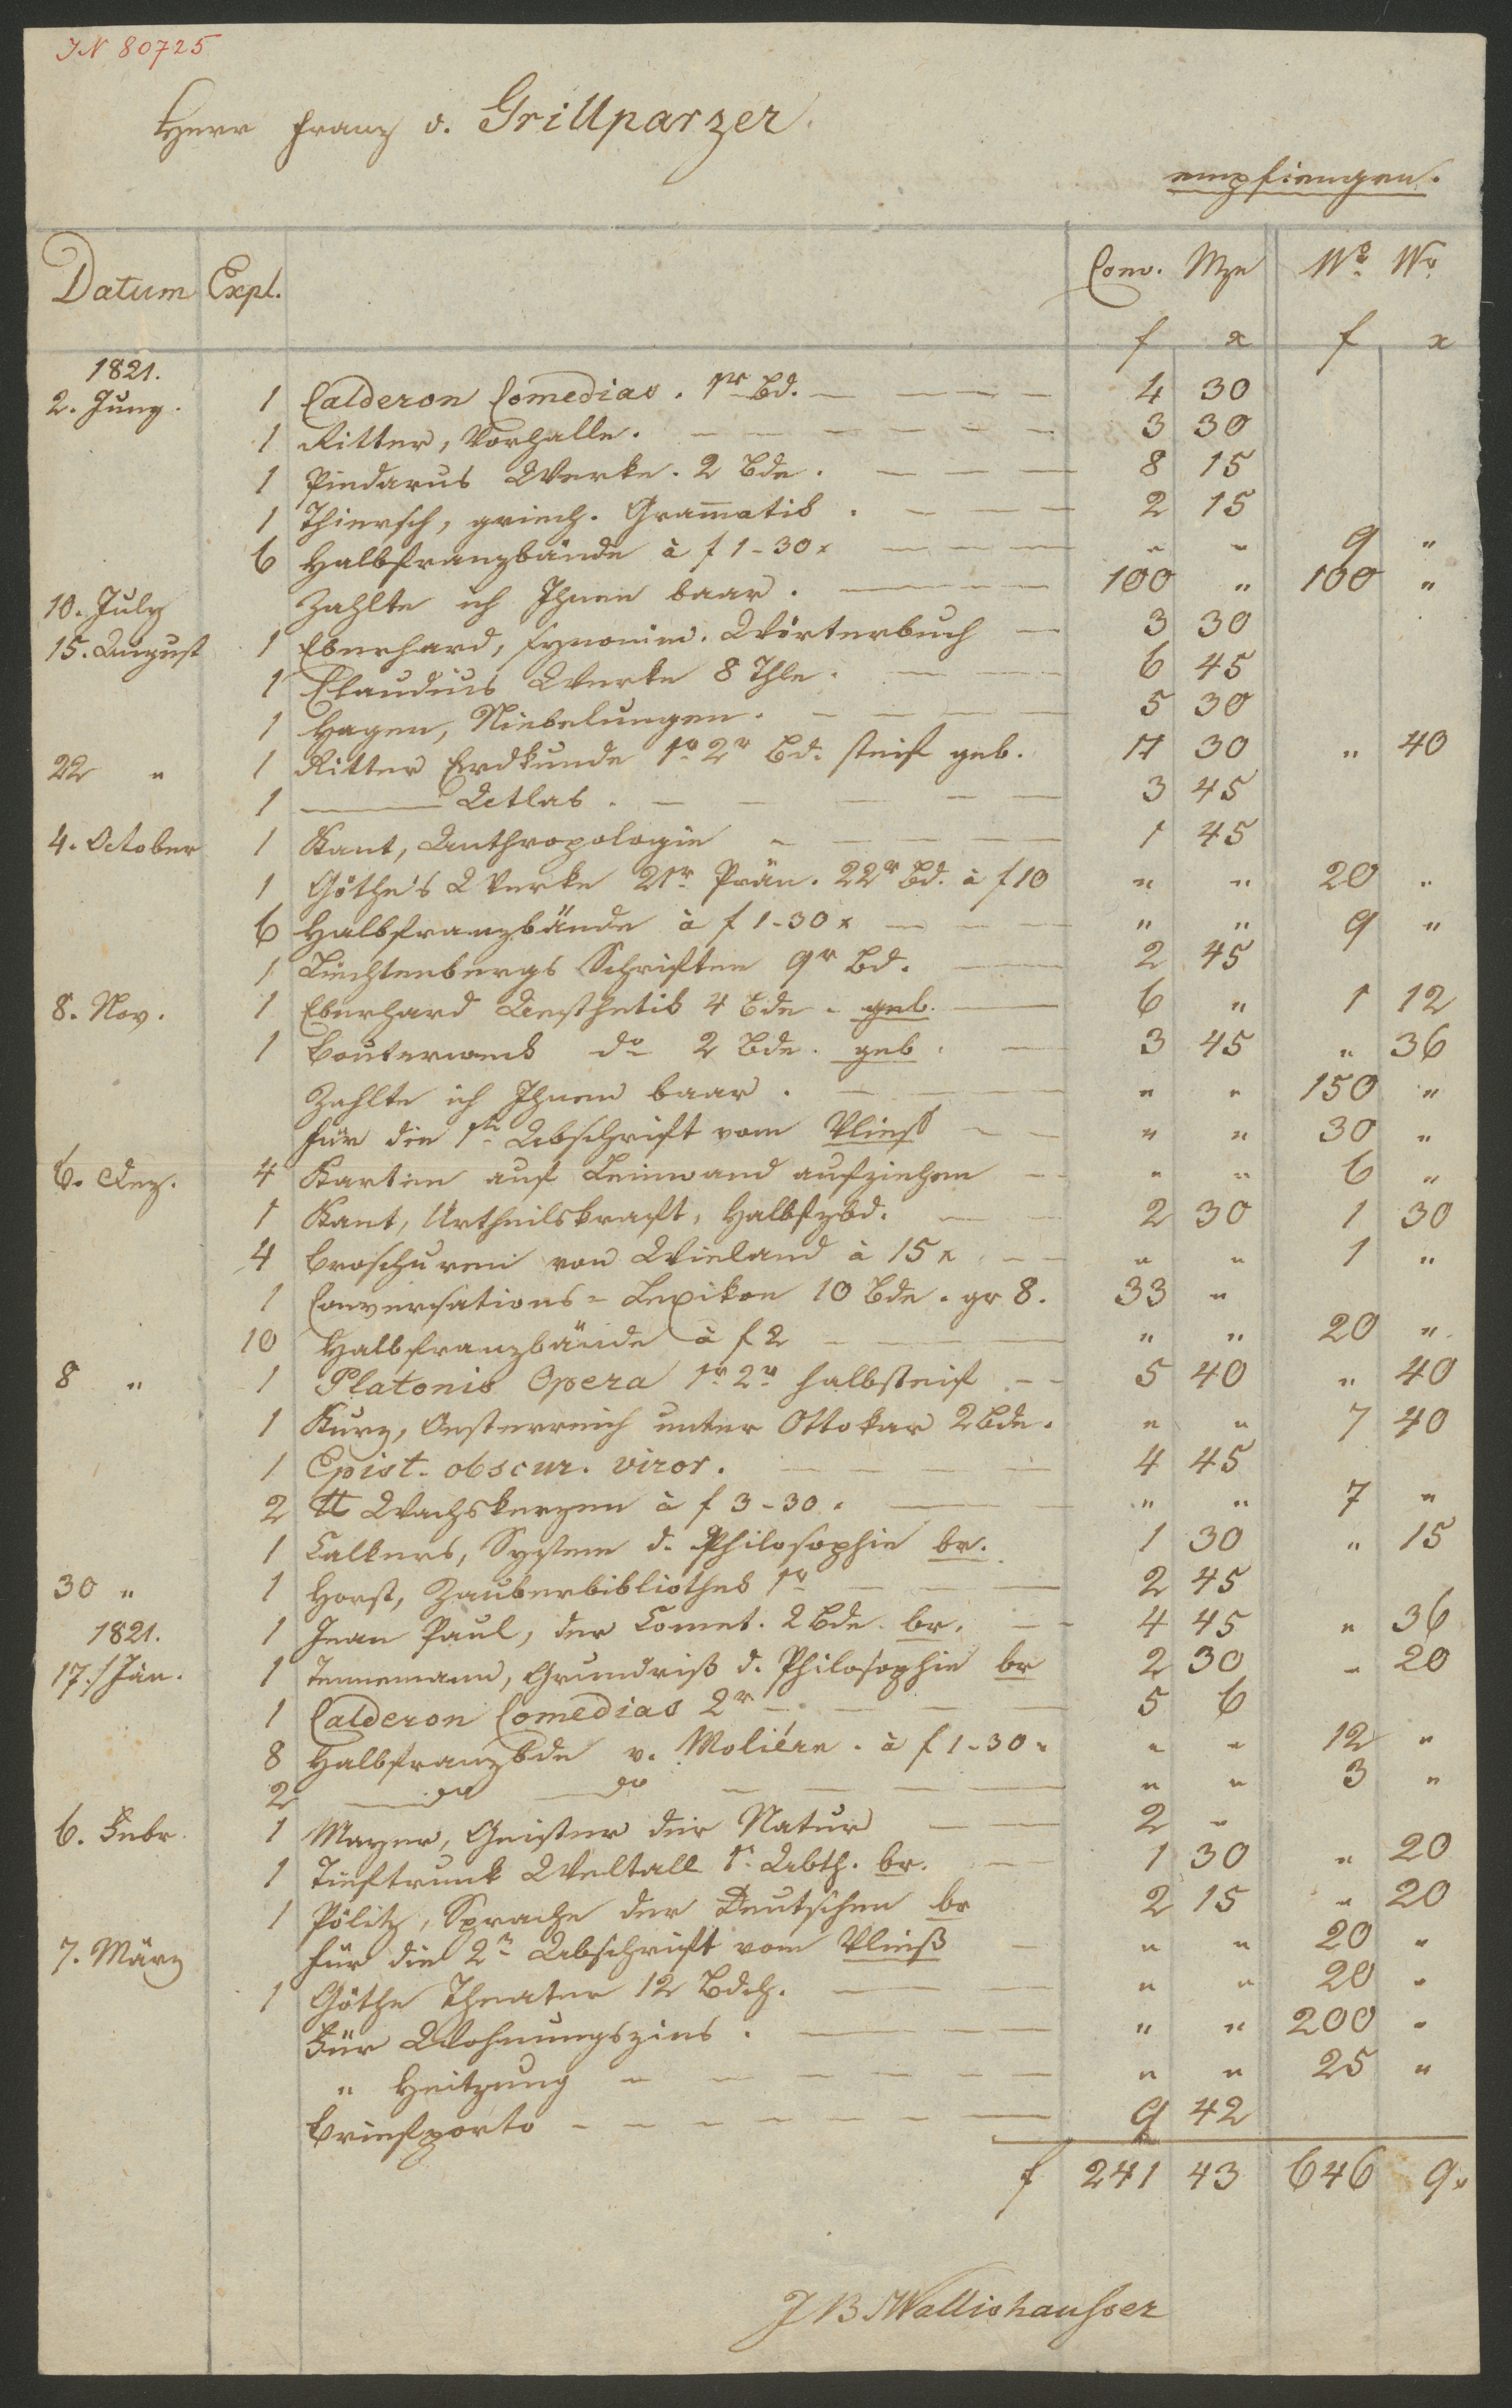 IN 80725
Herr Franz v. Grillparzer.
empfiengen.
Datum Expl. Conv. Mze W. W.
f x f x
1821.
2. Juny. 1 Calderon Comedias. 1r Bd. 4 30
1 Ritter, Vorhalle. 3 30
1 Pindarus Werke. 2 Bde. 8 15
1 Thiersch, griech. Gram̅atik. 2 15
6 Halbfranzbände à f 1-30x " " 9 "
10. July Zahlte ich Ihnen baar. 100 " 100 "
15. August 1 Eberhard, Synonim. Wörterbuch 3 30
1 Claudius Werke 8 Thle. 6 45
1 Hagen, Niebelungen. 5 30
22 " 1 Ritter Erdkunde 1r 2r Bd. steif geb. 11 30 " 40
1 Atlas. 3 45
4. October 1 Kant, Anthropologie 1 45
1 Göthe's Werke 21r Prän. 22r Bd. à f 10 " " 20 "
6 Halbfranzbände à f 1-30x " " 9 "
1 Liechtenbergs Schriften 9r Bd. 2 45
8. Nov. 1 Eberhard Aesthetik 4 Bde. geb. 6 " 1 12
1 Bouterweck do 2 Bde. geb. 3 45 " 36
Zahlte ich Ihnen baar. " " 150 "
für die 1te Abschrift vom Vließ " " 30 "
6. Dez. 4 Karten auf Leinwand aufziehen " " 6 "
1 Kant, Urtheilskraft, Halbfzbd. 2 30 1 30
4 Broschuren von Wieland à 15x " " 1 "
1 Conversations=Lexikon 10 Bde. gr 8. 33 "
10 Halbfranzbände à f 2 " " 20 "
8 " 1 Platonis Opera 1r 2r halbsteif 5 40 " 40
1 Kurz, Oesterreich unter Ottokar 2 Bde. " " 7 40
1 Epist. obscur. viror. 4 45
2 ℔ Wachskerzen à f 3-30. " " 7 "
1 Calkers, System d. Philosophie br. 1 30 " 15
30 " 1 Horst, Zauberbibliothek 1r 2 45
1821. 1 Jean Paul, der Comet. 2 Bde. br. 4 45 " 36
17./Jän. 1 Tennemann, Grundriß d. Philosophie br 2 30 " 20
1 Calderon Comedias 2r 5 6
8 Halbfranzbde v. Moliére. à f 1-30. " " 12 "
2 do do " " 3 "
6. Febr. 1 Mayer, Geister der Natur 2 "
1 Tieftrunk Weltall 1. Abth. br. 1 30 " 20
1 Pölitz, Sprache der Deutschen br 2 15 " 20
7. März für die 2te Abschrift vom Vließ " " 20 "
1 Göthe Theater 12 Bdch. " " 20 "
Für Wohnungszins. " " 200 "
" Heitzung " " 25 "
Briefporto 9 42
f 241 43 646 9.
J B Wallishausser